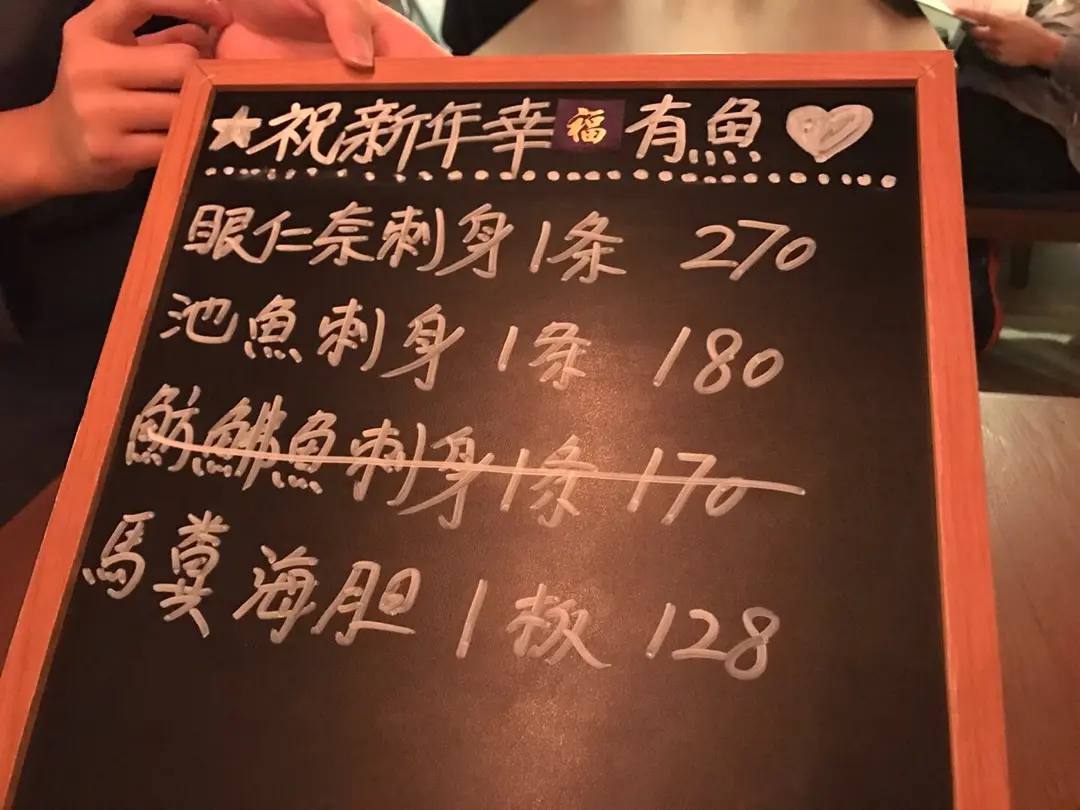 ★祝新年幸福有魚
眼仁奈刺身1条 270
池魚刺身 1条 180
魴鮄魚刺身1条 170
馬糞海胆 1板 128